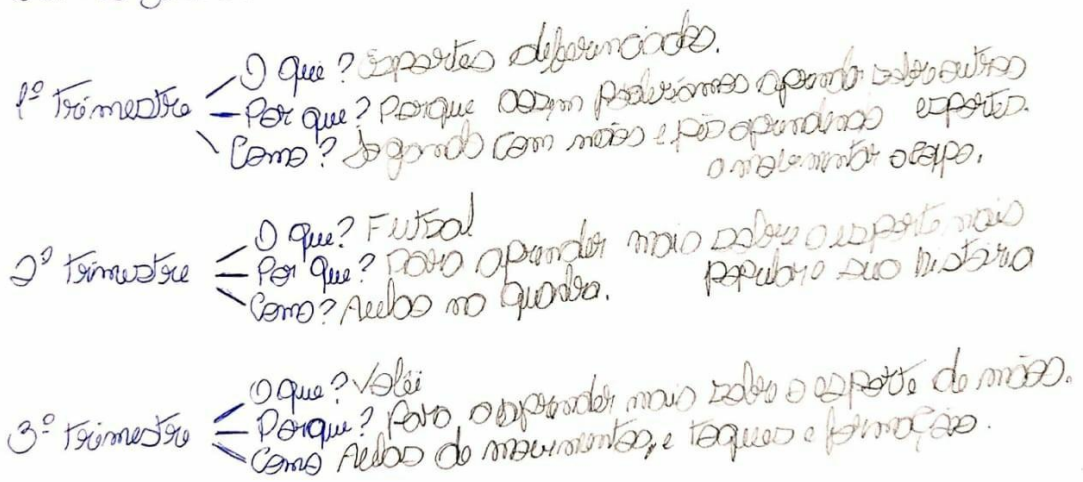 O que? Esportes diferenciados.
1º Trimestre Por que? Porque assim poderíamos aprender sobre outros esportes.
Como? Jogando com mãos e pés aprendendo a movimentar o corpo.
O que? Futsal
2º Trimestre Por que? Para aprender mais sobre o esporte mais popular e sua história
Como? Aulas na quadra.
O que? Volêi
3º Trimestre Porque? Para aprender mais sobre o esporte de mãos.
Como Aulas de movimentos, e toques e formação.